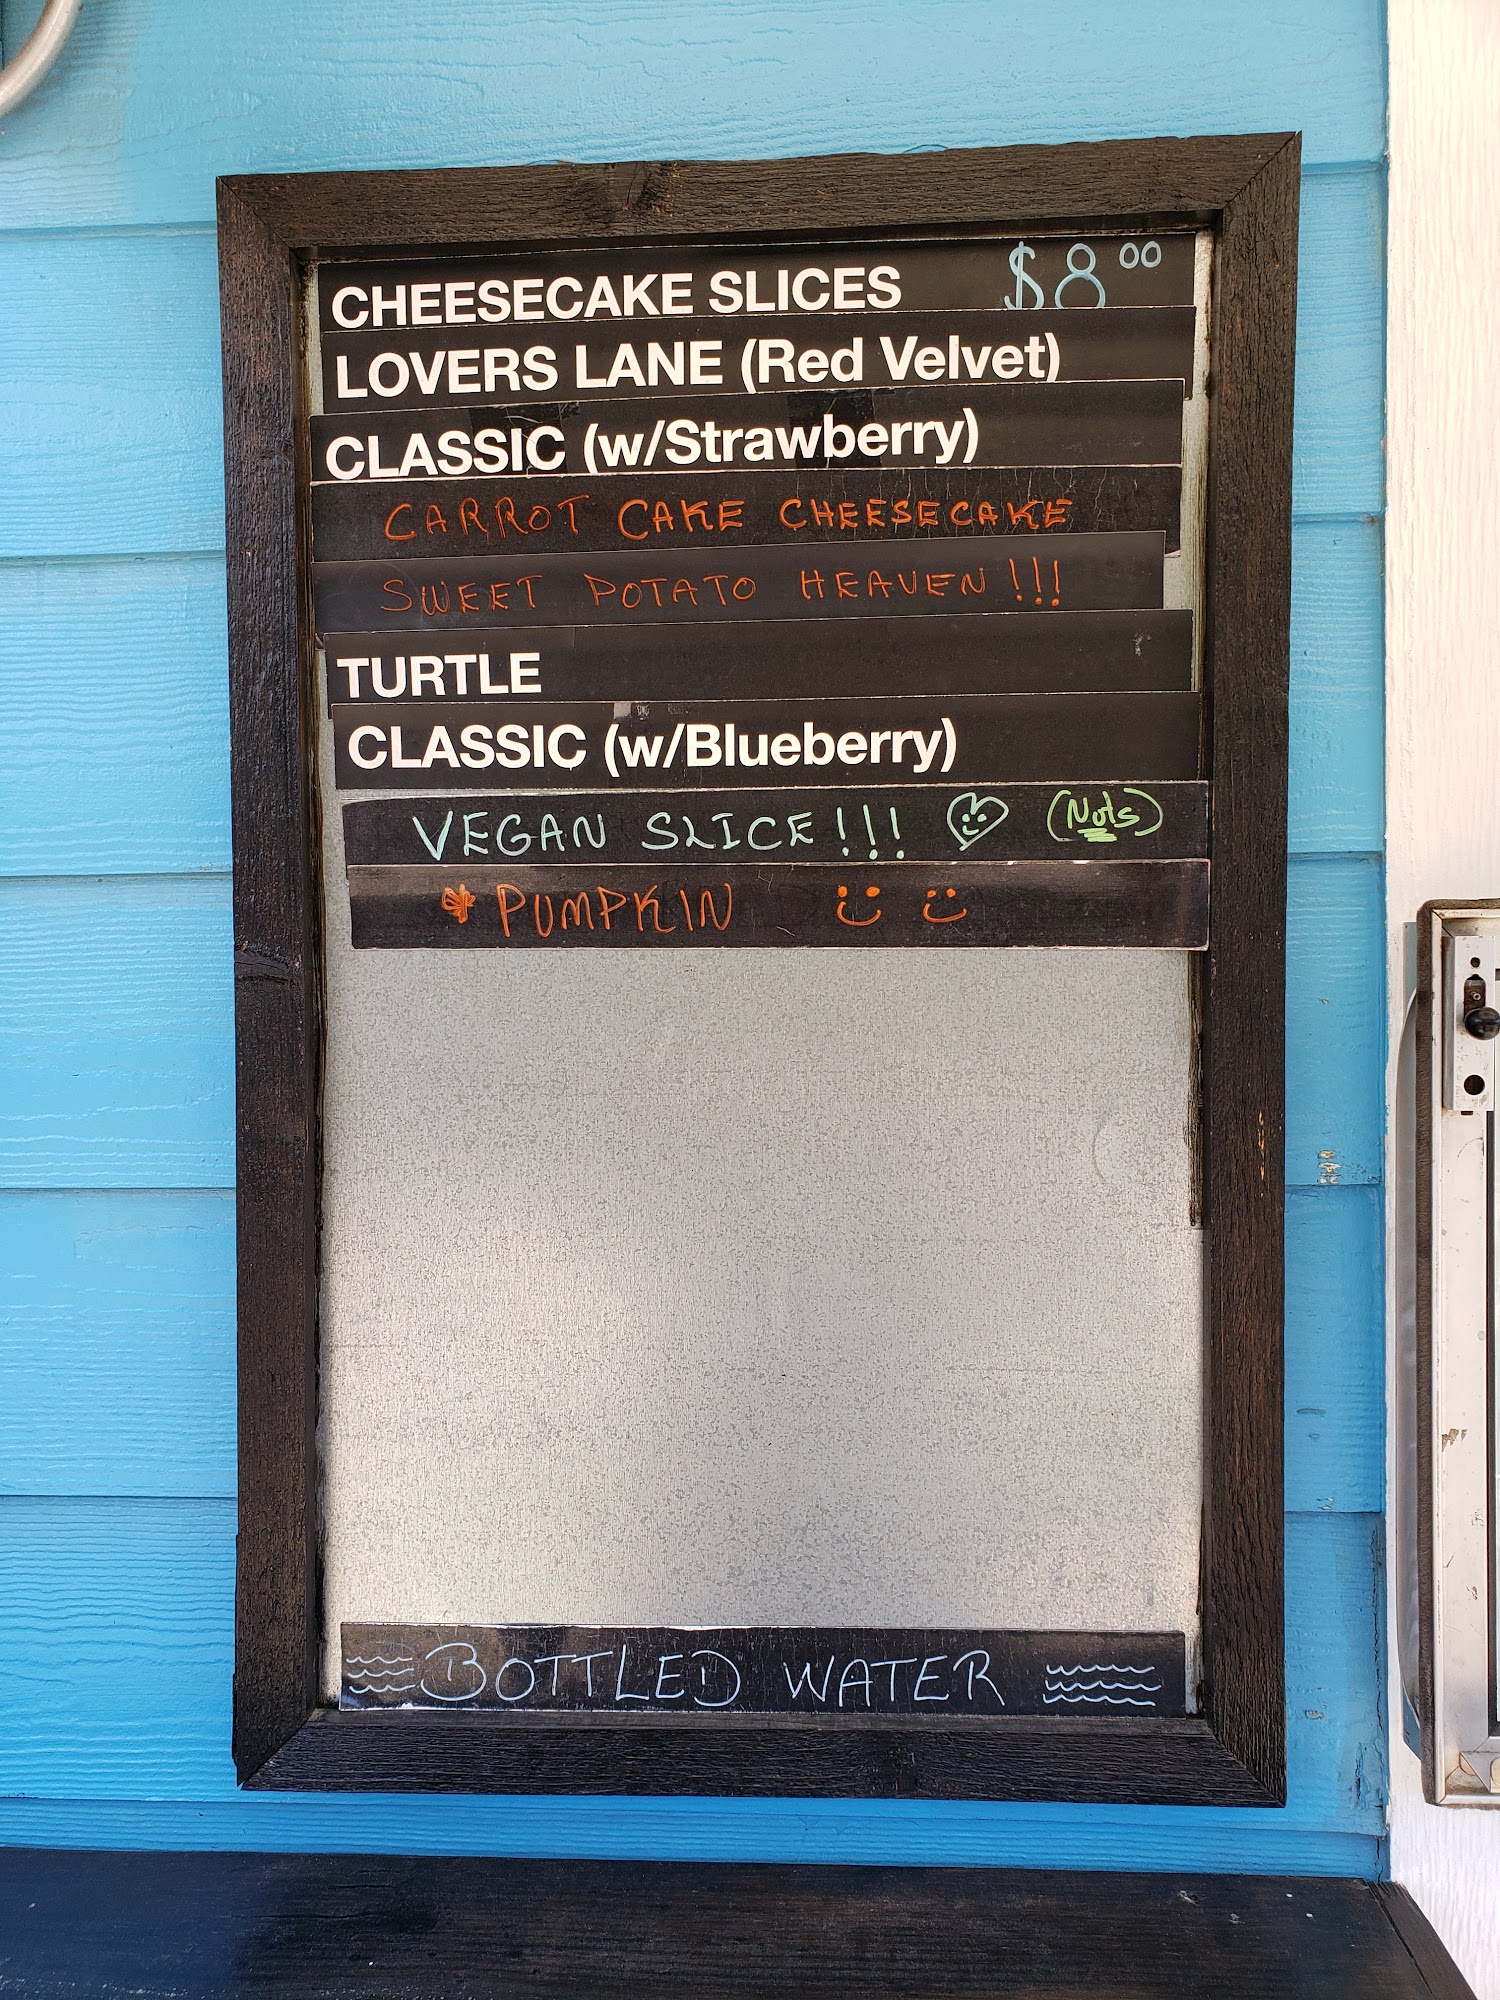 CHEESECAKE SLICES $8.00
LOVERS LANE (Red Velvet)
CLASSIC (w/Strawberry)
CARROT CAKE CHEESECAKE
SWEET POTATO HEAVEN!!!
TURTLE
CLASSIC (w/Blueberry)
VEGAN SLICE!!! (Nuts)
* PUMPKIN
BOTTLED WATER